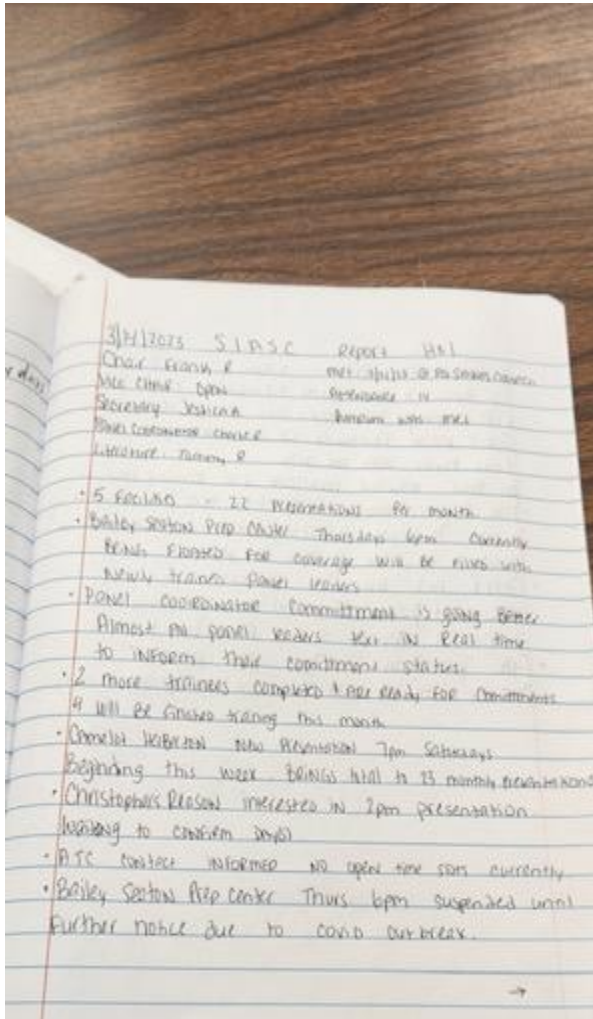 r days
3/14/2023 SIASC Report H&I
Chair Frank R met 3/1/23 @
Vice Chair Open Attendance 14
Secretary Jessica A Quorum was met
Panel Coordinator Charlie R
Literature Tammy R
• 5 Facilities - 22 presentations Per month
• Bailey Seaton Prep Center Thursdays 6pm Currently
Being Floated For coverage will be filled with
Newly trained panel leaders
• Panel coordinator Committment is going Better
Almost all panel leaders text in Real time
to inform their comittment status.
• 2 more trainees completed & are ready for committments
4 will be finished training this month
• Camelot New Presentation 7pm Saturdays
Beginning this week Brings total to 23 monthly presentations
• Christophers Reason interested in 2pm presentation
waiting to confirm day(s)
• ATC contact informed no open time slots currently
• Bailey Seaton Prep Center Thurs 6pm suspended until
further notice due to covid outbreak.
→